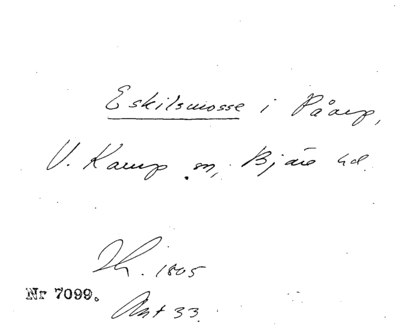 Eskilsmosse i Påarp,
V. Karup sn, Bjäre hd.
1805
Nr 7099.
Akt 33.